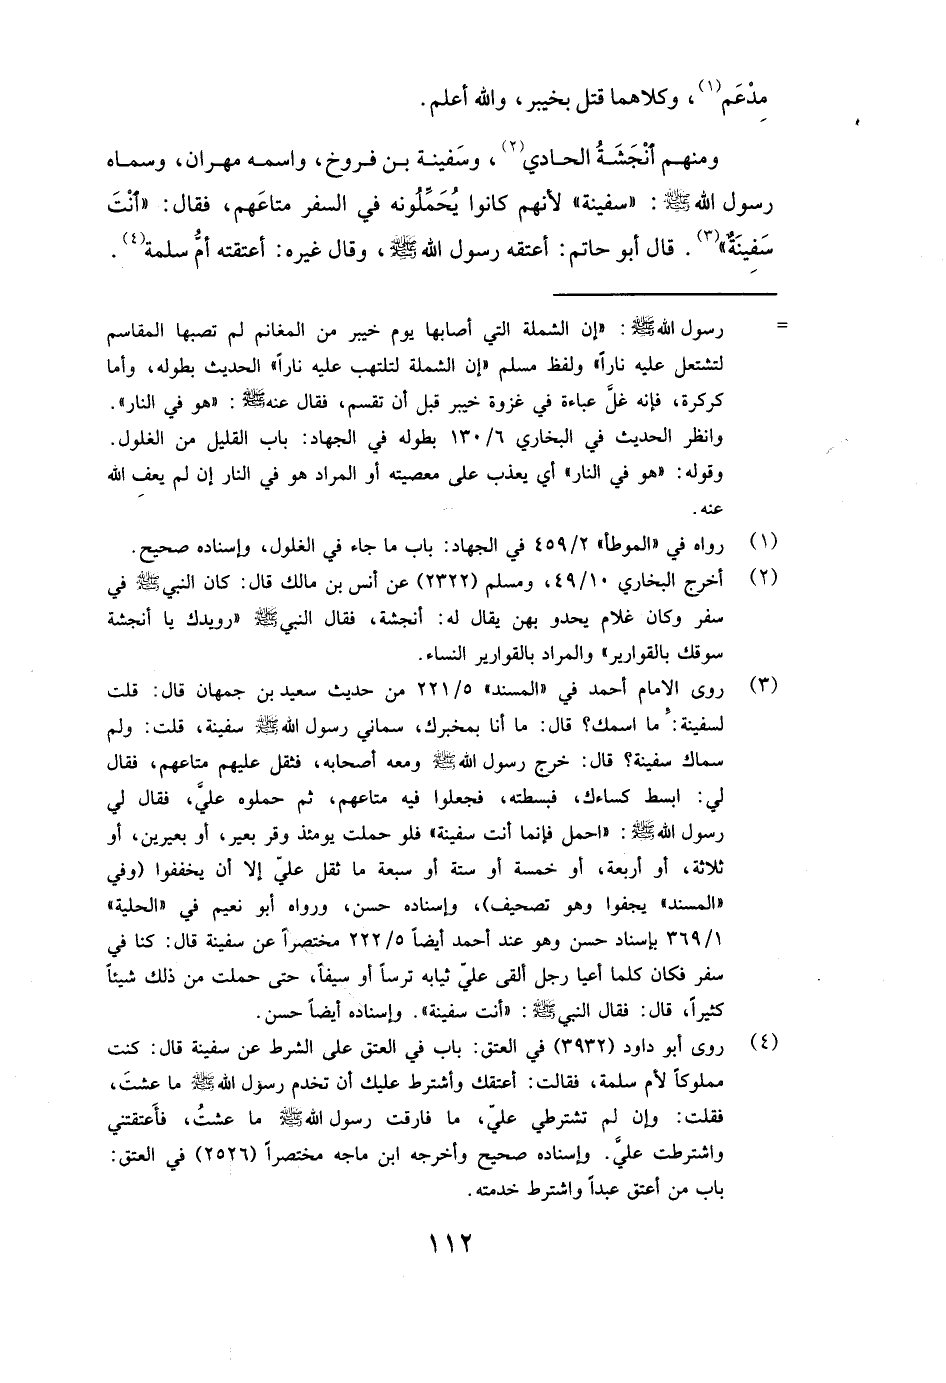 مِدْعَم(١)، وكلاهما قتل بخيبر، والله أعلم.
ومنهم أَنْجَشَةُ الحادي(٢)، وسَفينة بن فروخ، واسمه مهران، وسماه
رسول الله ﷺ: «سفينة» لأنهم كانوا يُحَمِّلُونه في السفر متاعَهم، فقال: «أَنْتَ
سَفِينَةٌ»(٣). قال أبو حاتم: أعتقه رسول الله ﷺ، وقال غيره: أعتقته أمُّ سلمة(٤).
= رسول الله ﷺ: «إن الشملة التي أصابها يوم خيبر من المغانم لم تصبها المقاسم
لتشتعل عليه ناراً» ولفظ مسلم «إن الشملة لتلتهب عليه ناراً» الحديث بطوله، وأما
كركرة، فإنه غلَّ عباءة في غزوة خيبر قبل أن تقسم، فقال عنه ﷺ: «هو في النار».
وانظر الحديث في البخاري ١٣٠/٦ بطوله في الجهاد: باب القليل من الغلول.
وقوله: «هو في النار» أي يعذب على معصيته أو المراد هو في النار إن لم يعف الله
عنه.
(١) رواه في «الموطأ» ٤٥٩/٢ في الجهاد: باب ما جاء في الغلول، وإسناده صحيح.
(٢) أخرج البخاري ٤٩/١٠، ومسلم (٢٣٢٢) عن أنس بن مالك قال: كان النبي ﷺ في
سفر وكان غلام يحدو بهن يقال له: أنجشة، فقال النبي ﷺ «رويدك يا أنجشة
سوقك بالقوارير» والمراد بالقوارير النساء.
(٣) روى الامام أحمد في «المسند» ٢٢١/٥ من حديث سعيد بن جمهان قال: قلت
لسفينة: ما اسمك؟ قال: ما أنا بمخبرك، سماني رسول الله ﷺ سفينة، قلت: ولم
سماك سفينة؟ قال: خرج رسول الله ﷺ ومعه أصحابه، فثقل عليهم متاعهم، فقال
لي: ابسط كساءك، فبسطته، فجعلوا فيه متاعهم، ثم حملوه عليَّ، فقال لي
رسول الله ﷺ: «احمل فإنما أنت سفينة» فلو حملت يومئذ وقر بعير، أو بعيرين، أو
ثلاثة، أو أربعة، أو خمسة أو ستة أو سبعة ما ثقل عليّ إلا أن يخففوا (وفي
«المسند» يجفوا وهو تصحيف)، وإسناده حسن، ورواه أبو نعيم في «الحلية»
٣٦٩/١ بإسناد حسن وهو عند أحمد أيضاً ٢٢٢/٥ مختصراً عن سفينة قال: كنا في
سفر فكان كلما أعيا رجل ألقى عليّ ثيابه ترساً أو سيفاً، حتى حملت من ذلك شيئاً
كثيراً، قال: فقال النبي ﷺ: «أنت سفينة». وإسناده أيضاً حسن.
(٤) روى أبو داود (٣٩٣٢) في العتق: باب في العتق على الشرط عن سفينة قال: كنت
مملوكاً لأم سلمة، فقالت: أعتقك وأشترط عليك أن تخدم رسول الله ﷺ ما عشتَ،
فقلت: وإن لم تشترطي عليّ، ما فارقت رسول الله ﷺ ما عشتُ، فأَعتقتني
واشترطت عليَّ. وإسناده صحيح وأخرجه ابن ماجه مختصراً (٢٥٢٦) في العتق:
باب من أعتق عبداً واشترط خدمته.
١١٢